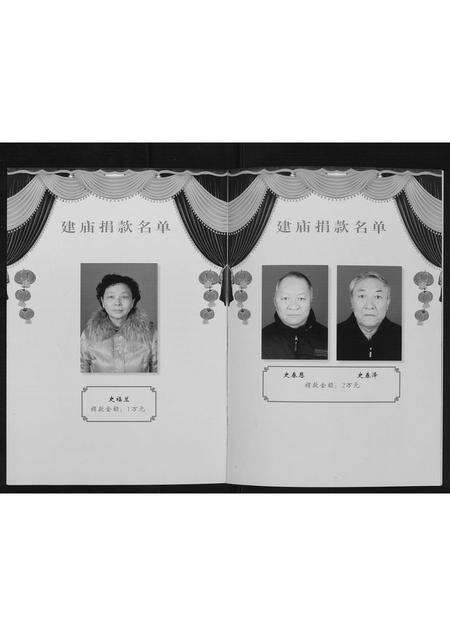 建庙捐款名单
史福兰
捐款金额：1万元
建庙捐款名单
史泰恩 史泰泽
捐款金额：2万元